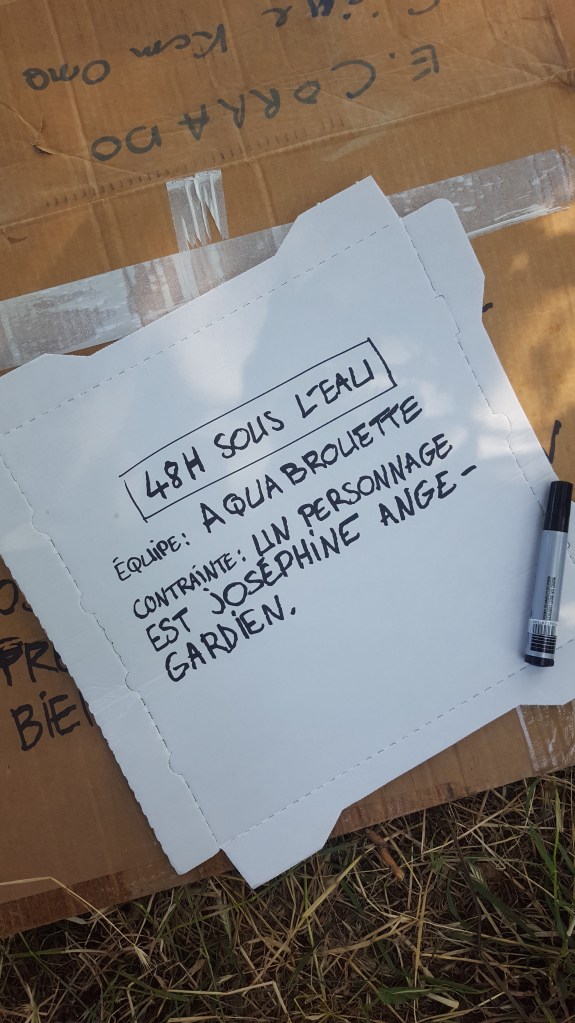 E. CORRADO
48H SOUS L'EAU
ÉQUIPE: AQUABROUETTE
CONTRAINTE: UN PERSONNAGE
EST JOSÉPHINE ANGE-
GARDIEN.
BIE